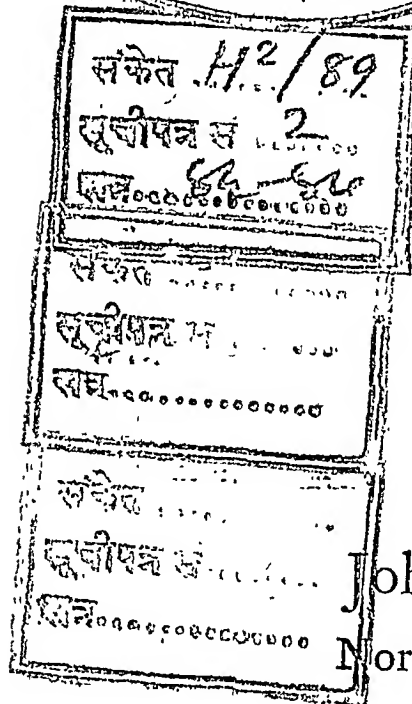 संकेत ....... H²/89
सूचीपत्र सं ....2....
सन्..............
संकेत ..............
सूचीपत्र सं ..........
सन्..............
संकेत ..............
सूचीपत्र सं .......... Joh
सन्.............. Nor